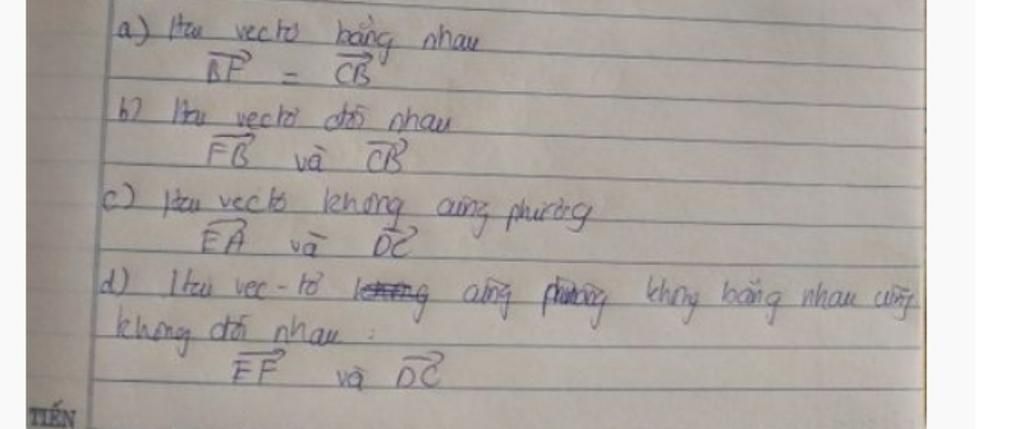 a) Hai vectơ bằng nhau
BF = CB
b) Hai vectơ đối nhau
FB và CB
c) Hai vectơ không cùng phương
EA và DC
d) Hai vec-tơ không cùng phương không bằng nhau cũng
không đối nhau :
EF và DC
TIẾN